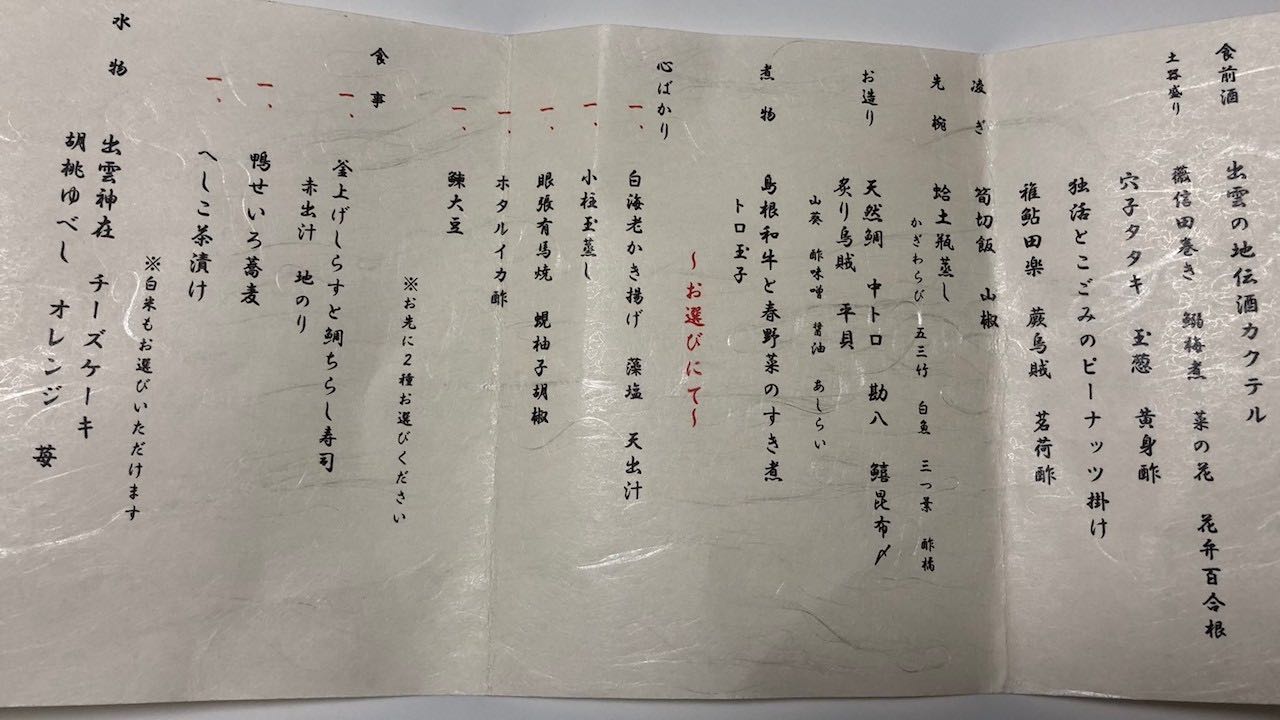 食前酒 出雲の地伝酒カクテル
土器盛り 薇信田巻き 鰯梅煮 菜の花 花弁百合根
穴子タタキ 玉葱 黄身酢
独活とこごみのピーナッツ掛け
稚鮎田楽 蕨烏賊 茗荷酢
凌ぎ 筍切飯 山椒
先椀 蛤土瓶蒸し
かぎわらび 五三竹 白魚 三つ葉 酢橘
お造り 天然鯛 中トロ 勘八 鱚昆布〆
炙り烏賊 平貝
山葵 酢味噌 醤油 あしらい
煮物 島根和牛と春野菜のすき煮
トロ玉子
〜お選びにて〜
心ばかり
一、白海老かき揚げ 藻塩 天出汁
一、小柱玉蒸し
一、眼張有馬焼 蜆柚子胡椒
一、ホタルイカ酢
一、鰊大豆
※お先に2種お選びください
食事
一、釜上げしらすと鯛ちらし寿司
赤出汁 地のり
一、鴨せいろ蕎麦
一、へしこ茶漬け
※白米もお選びいただけます
水物 出雲神在 チーズケーキ
胡桃ゆべし オレンジ 苺